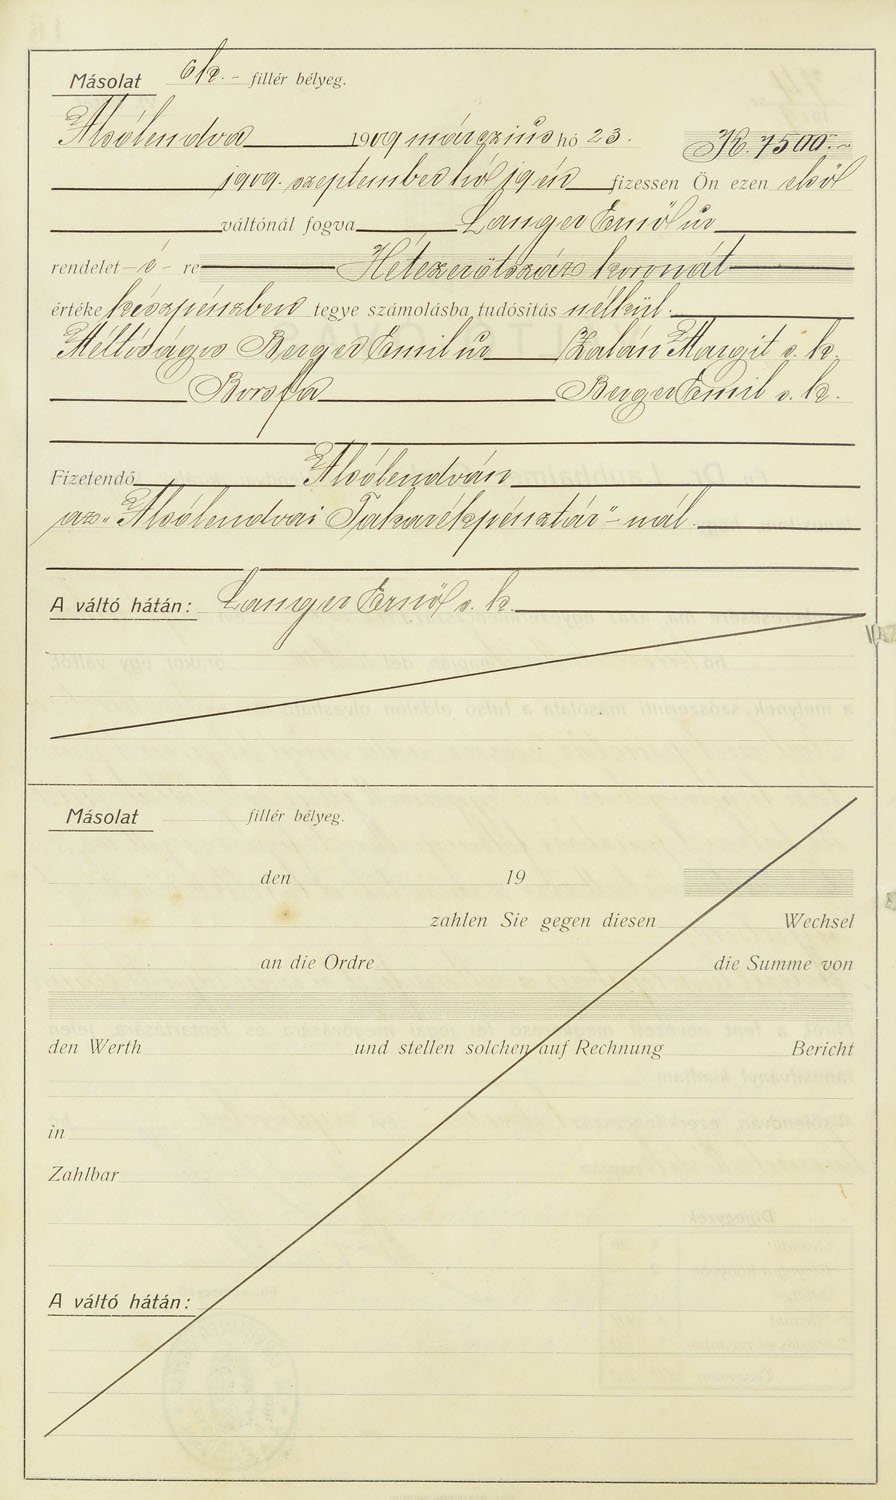 Másolat 6 k. - fillér bélyeg.
Alsólendva 1909 március hó 23. K. 7500.-
1909. szeptember hó 19 én fizessen Ön ezen első
váltónál fogva Langer Ernő úr
rendelet-é-re Hétezerötszáz koronát
értéke készpénzben tegye számolásba tudósitás nélkül.
Méltóságos Berger Emil úr Zalán Margit s. k.
Borsfa Berger Emil s. k.
Fizetendő Alsólendván
az "Alsólendvai Takarékpénztár"-nál.
A váltó hátán: Langer Ernő s. k.
Másolat fillér bélyeg.
den 19
zahlen Sie gegen diesen Wechsel
an die Ordre die Summe von
den Werth und stellen solchen auf Rechnung Bericht
in
Zahlbar
A váltó hátán: